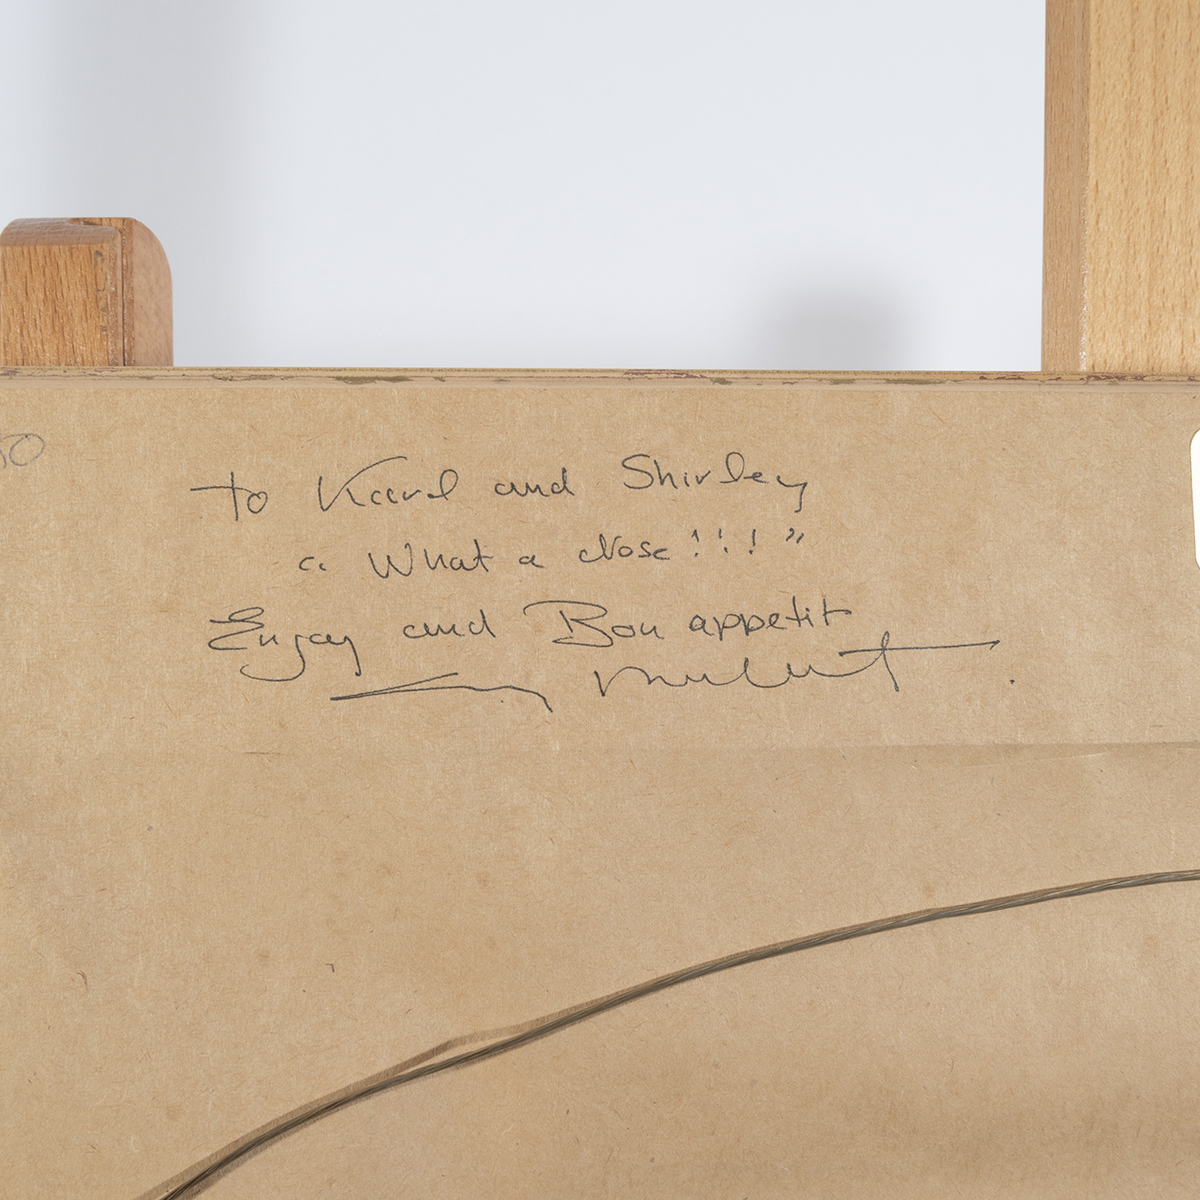 To Kaarl and Shirley
" What a Nose!!! "
Enjoy and Bon appetit